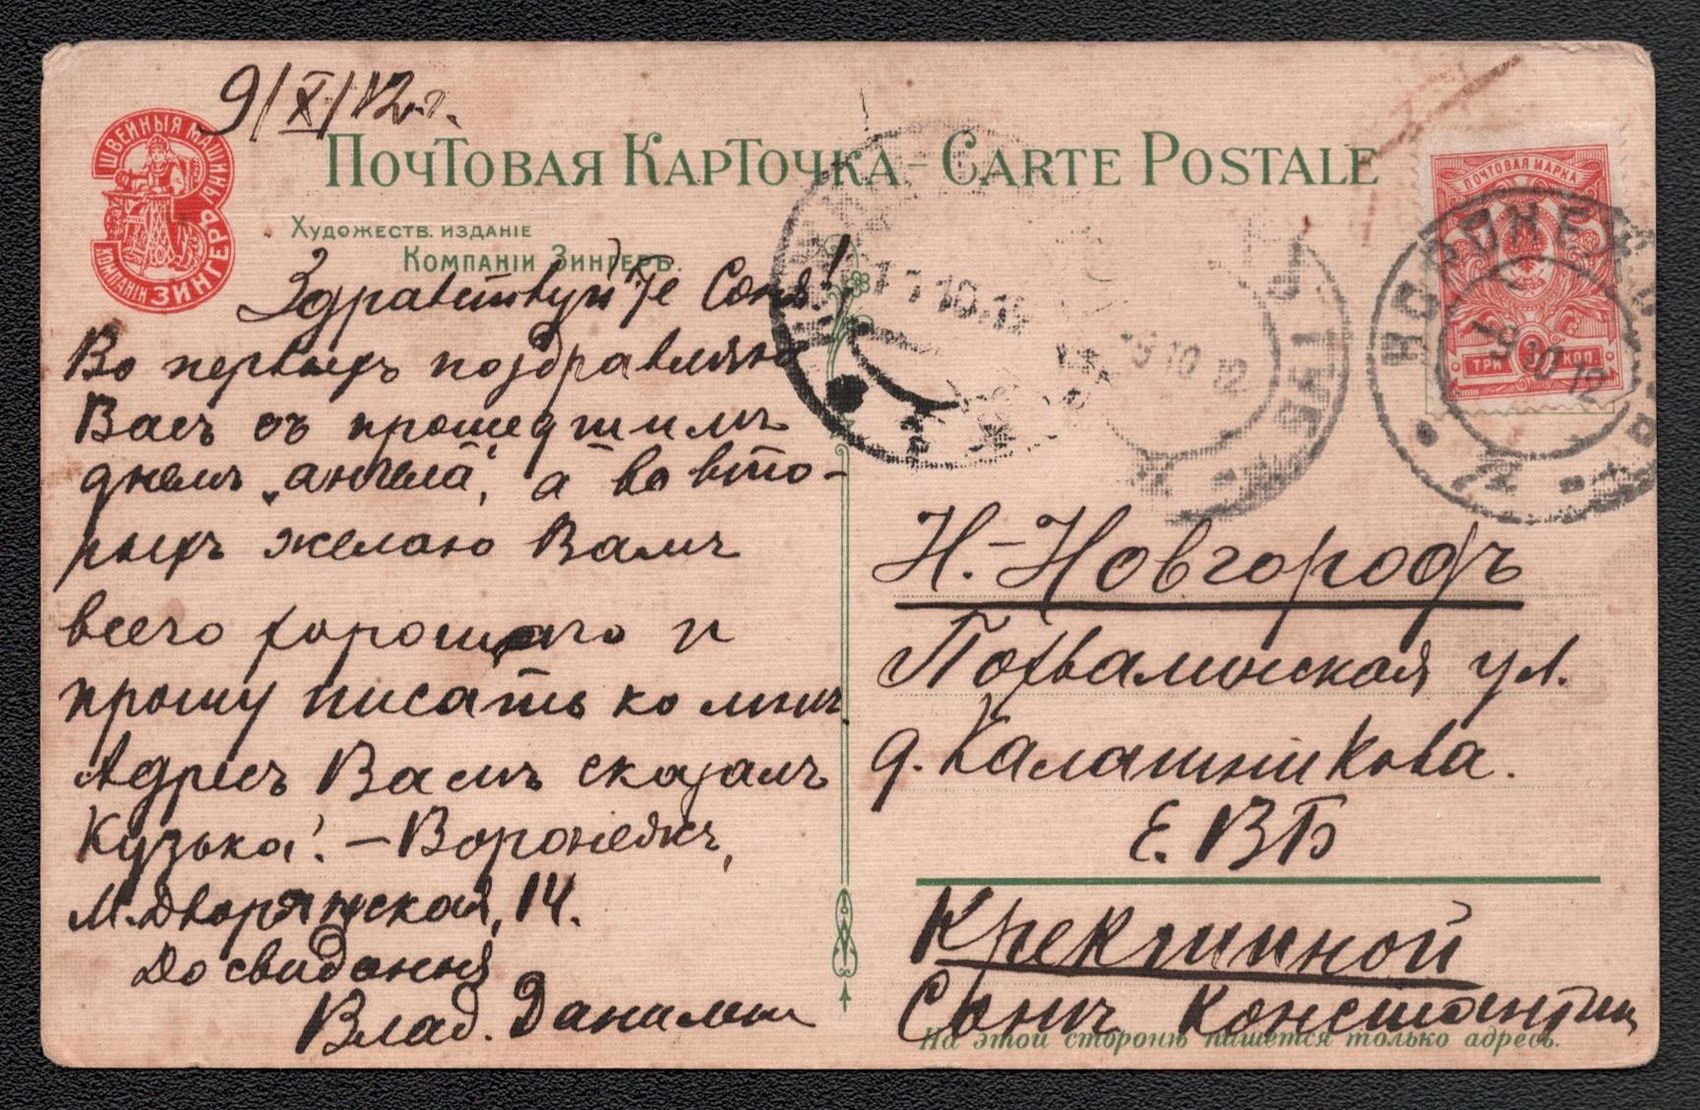 9/X/12 г.
ШВЕЙНЫЯ МАШИНЫ
КОМПАНІИ ЗИНГЕРЪ
ПОЧТОВАЯ КАРТОЧКА – CARTE POSTALE
ХУДОЖЕСТВ. ИЗДАНІЕ
КОМПАНІИ ЗИНГЕРЪ.
Здравствуйте Соня!
Во первыхъ поздравляю
Васъ съ прошедшимъ
днемъ „ангела", а во вто-
рыхъ желаю Вамъ
всего хорошаго и
прошу писать ко мнѣ.
Адресъ Вамъ сказалъ
Кузька! – Воронежъ,
М. Дворянская, 14.
До свиданія
Влад.
ПОЧТОВАЯ МАРКА
ТРИ 3 КОП
ВОРОНЕЖЪ
-9 10 12
-9 10 12
10.12
Н.-Новгородъ
Похвалинская ул.
д. Калашникова.
Е. ВБ
Крекшиной
Сонѣ Константин
На этой сторонѣ пишется только адресъ.